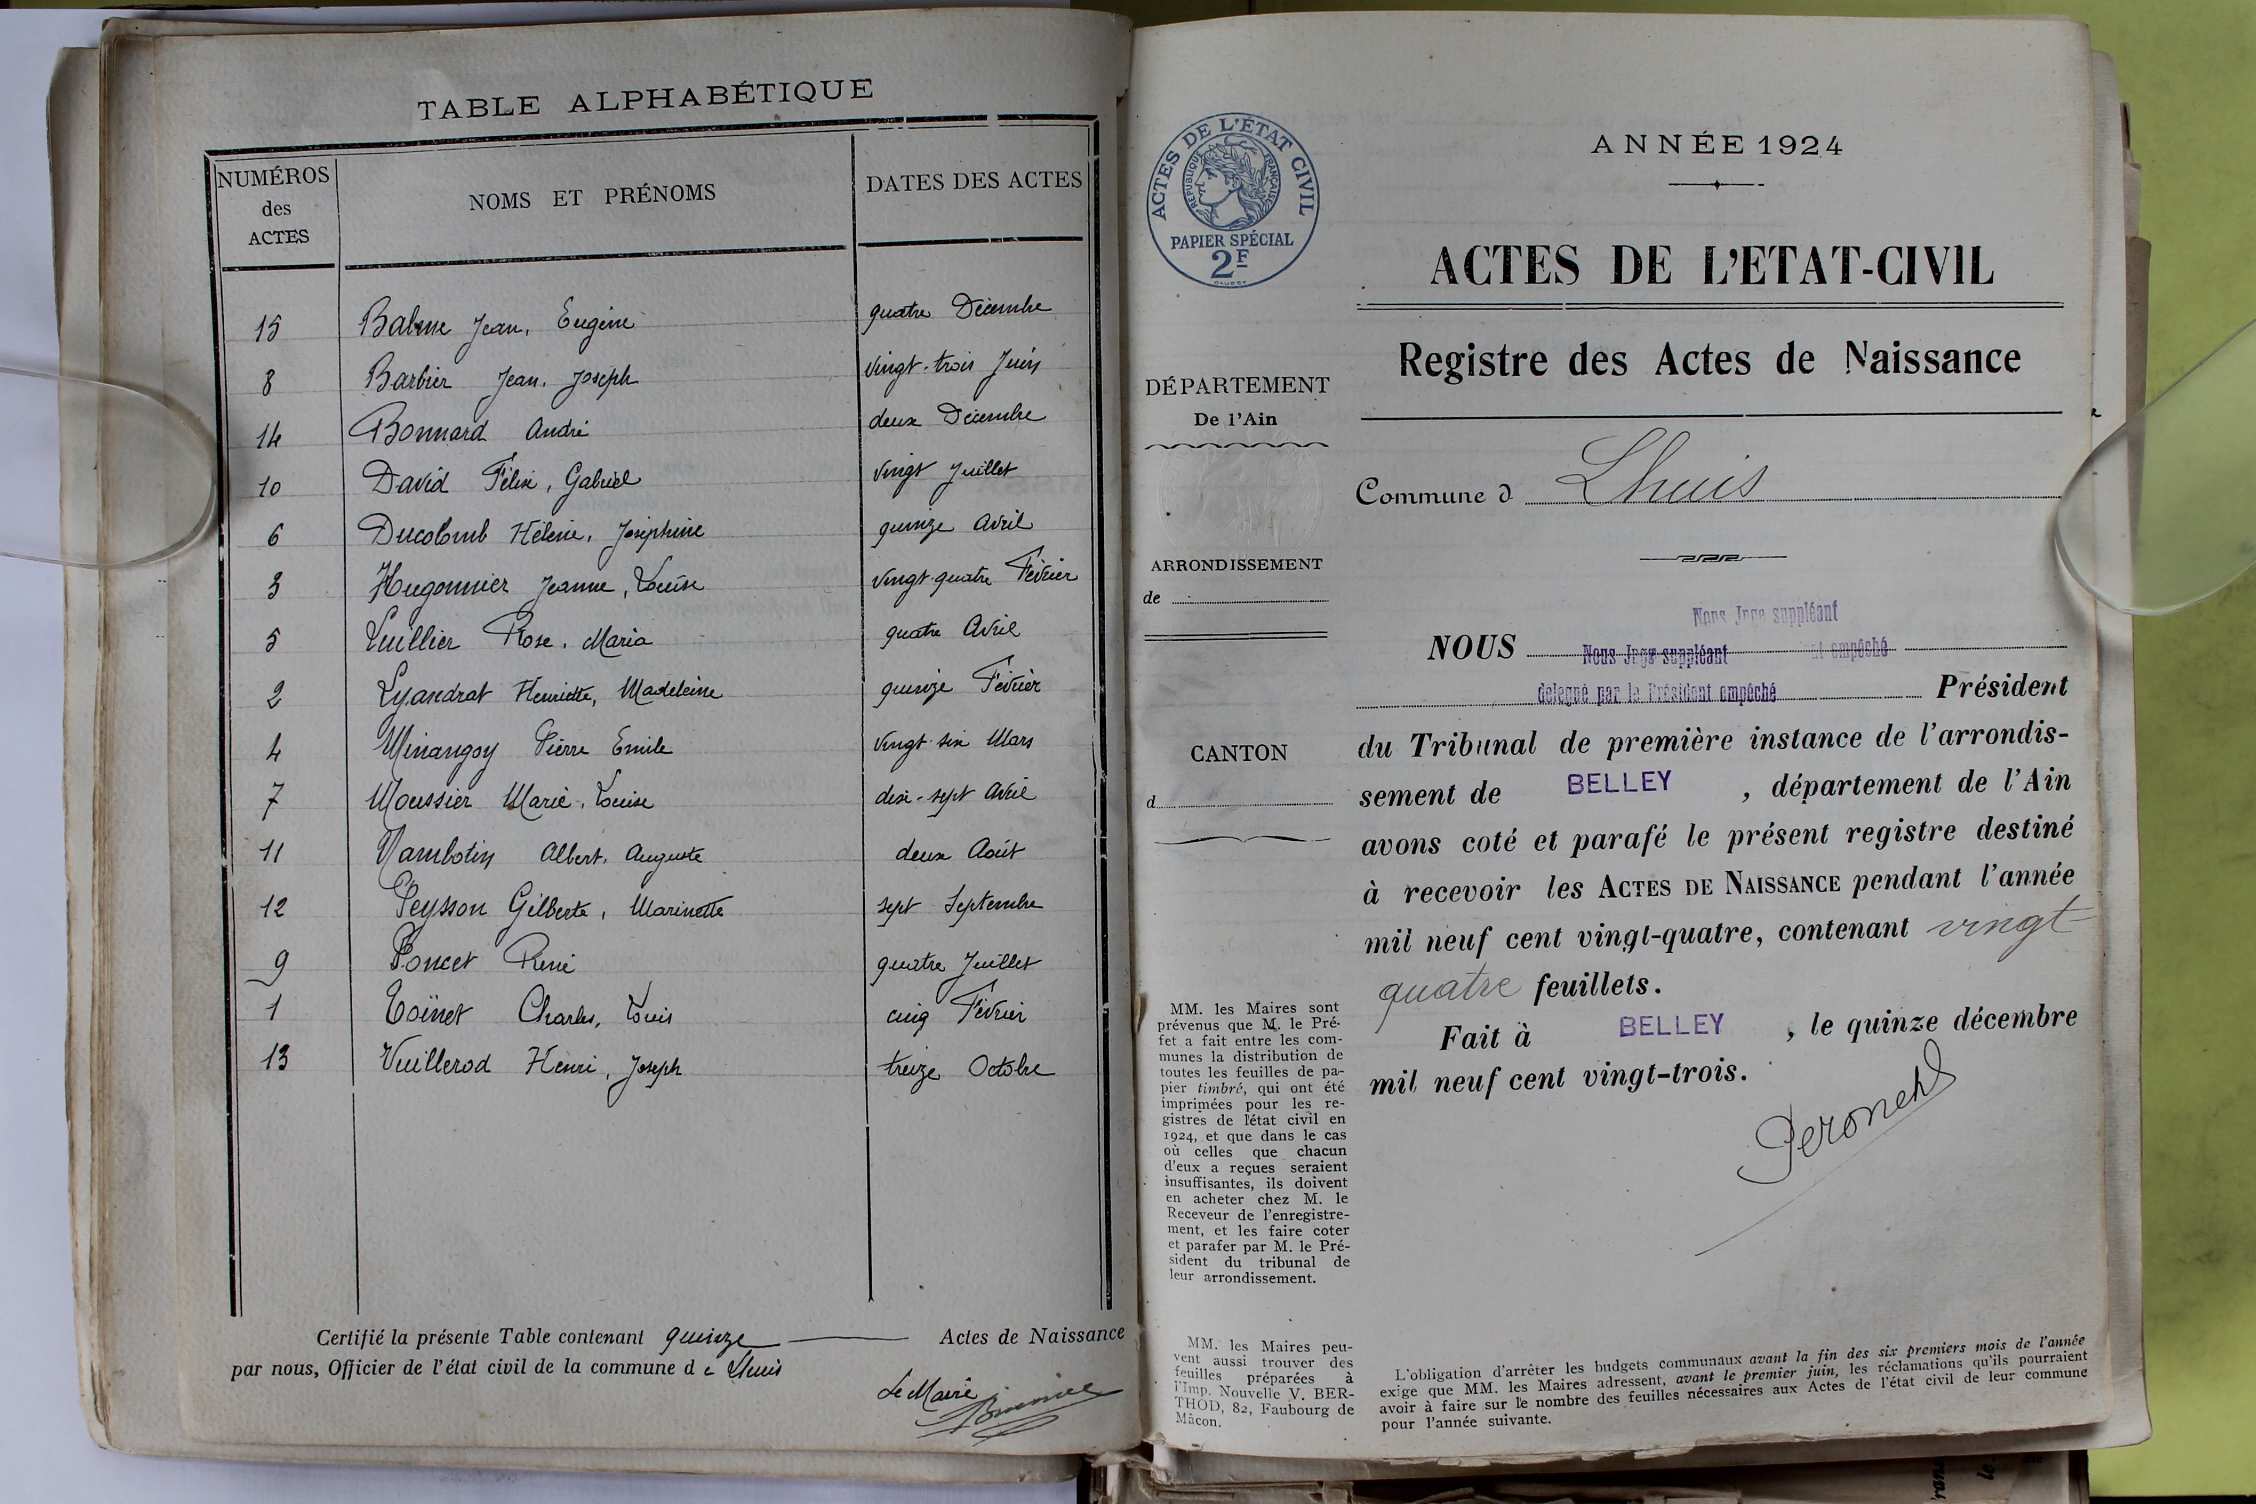 TABLE ALPHABÉTIQUE
NUMÉROS des ACTES NOMS ET PRÉNOMS DATES DES ACTES
15 Balme Jean, Eugène quatre Décembre
8 Barbier Jean, Joseph vingt-trois Juin
14 Bonnard André deux Décembre
10 David Félix, Gabriel vingt Juillet
6 Ducolomb Hélène, Joséphine quinze Avril
3 Hugonnier Jeanne, Louise vingt-quatre Février
5 Luillier Rose, Maria quatre Avril
2 Lyandrat Henriette, Madeleine quinze Février
4 Minangoy Pierre Emile vingt-six Mars
7 Moussier Marie, Louise dix-sept Avril
11 Nambotin Albert, Auguste deux Août
12 Peysson Gilberte, Marinette sept Septembre
9 Poncet René quatre Juillet
1 Toïnet Charles, Louis cinq Février
13 Vuillerod Henri, Joseph treize Octobre
Certifié la présente Table contenant quinze Actes de Naissance
par nous, Officier de l'état civil de la commune d e Lhuis
Le Maire
ACTES DE L'ÉTAT CIVIL
RÉPUBLIQUE FRANÇAISE
PAPIER SPÉCIAL
2F
DÉPARTEMENT
De l'Ain
ARRONDISSEMENT
de
CANTON
d
MM. les Maires sont
prévenus que M. le Pré-
fet a fait entre les com-
munes la distribution de
toutes les feuilles de pa-
pier timbré, qui ont été
imprimées pour les re-
gistres de l'état civil en
1924, et que dans le cas
où celles que chacun
d'eux a reçues seraient
insuffisantes, ils doivent
en acheter chez M. le
Receveur de l'enregistre-
ment, et les faire coter
et parafer par M. le Pré-
sident du tribunal de
leur arrondissement.
MM. les Maires peu-
vent aussi trouver des
feuilles préparées à
l'Imp. Nouvelle V. BER-
THOD, 82, Faubourg de
Mâcon.
ANNÉE 1924
ACTES DE L'ETAT-CIVIL
Registre des Actes de Naissance
Commune d Lhuis
Nous Juge suppléant
NOUS Nous Juge suppléant empêché
délégué par le Président empêché Président
du Tribunal de première instance de l'arrondis-
sement de BELLEY , département de l'Ain
avons coté et parafé le présent registre destiné
à recevoir les ACTES DE NAISSANCE pendant l'année
mil neuf cent vingt-quatre, contenant vingt-
quatre feuillets.
Fait à BELLEY , le quinze décembre
mil neuf cent vingt-trois.
L'obligation d'arrêter les budgets communaux avant la fin des six premiers mois de l'année
exige que MM. les Maires adressent, avant le premier juin, les réclamations qu'ils pourraient
avoir à faire sur le nombre des feuilles nécessaires aux Actes de l'état civil de leur commune
pour l'année suivante.